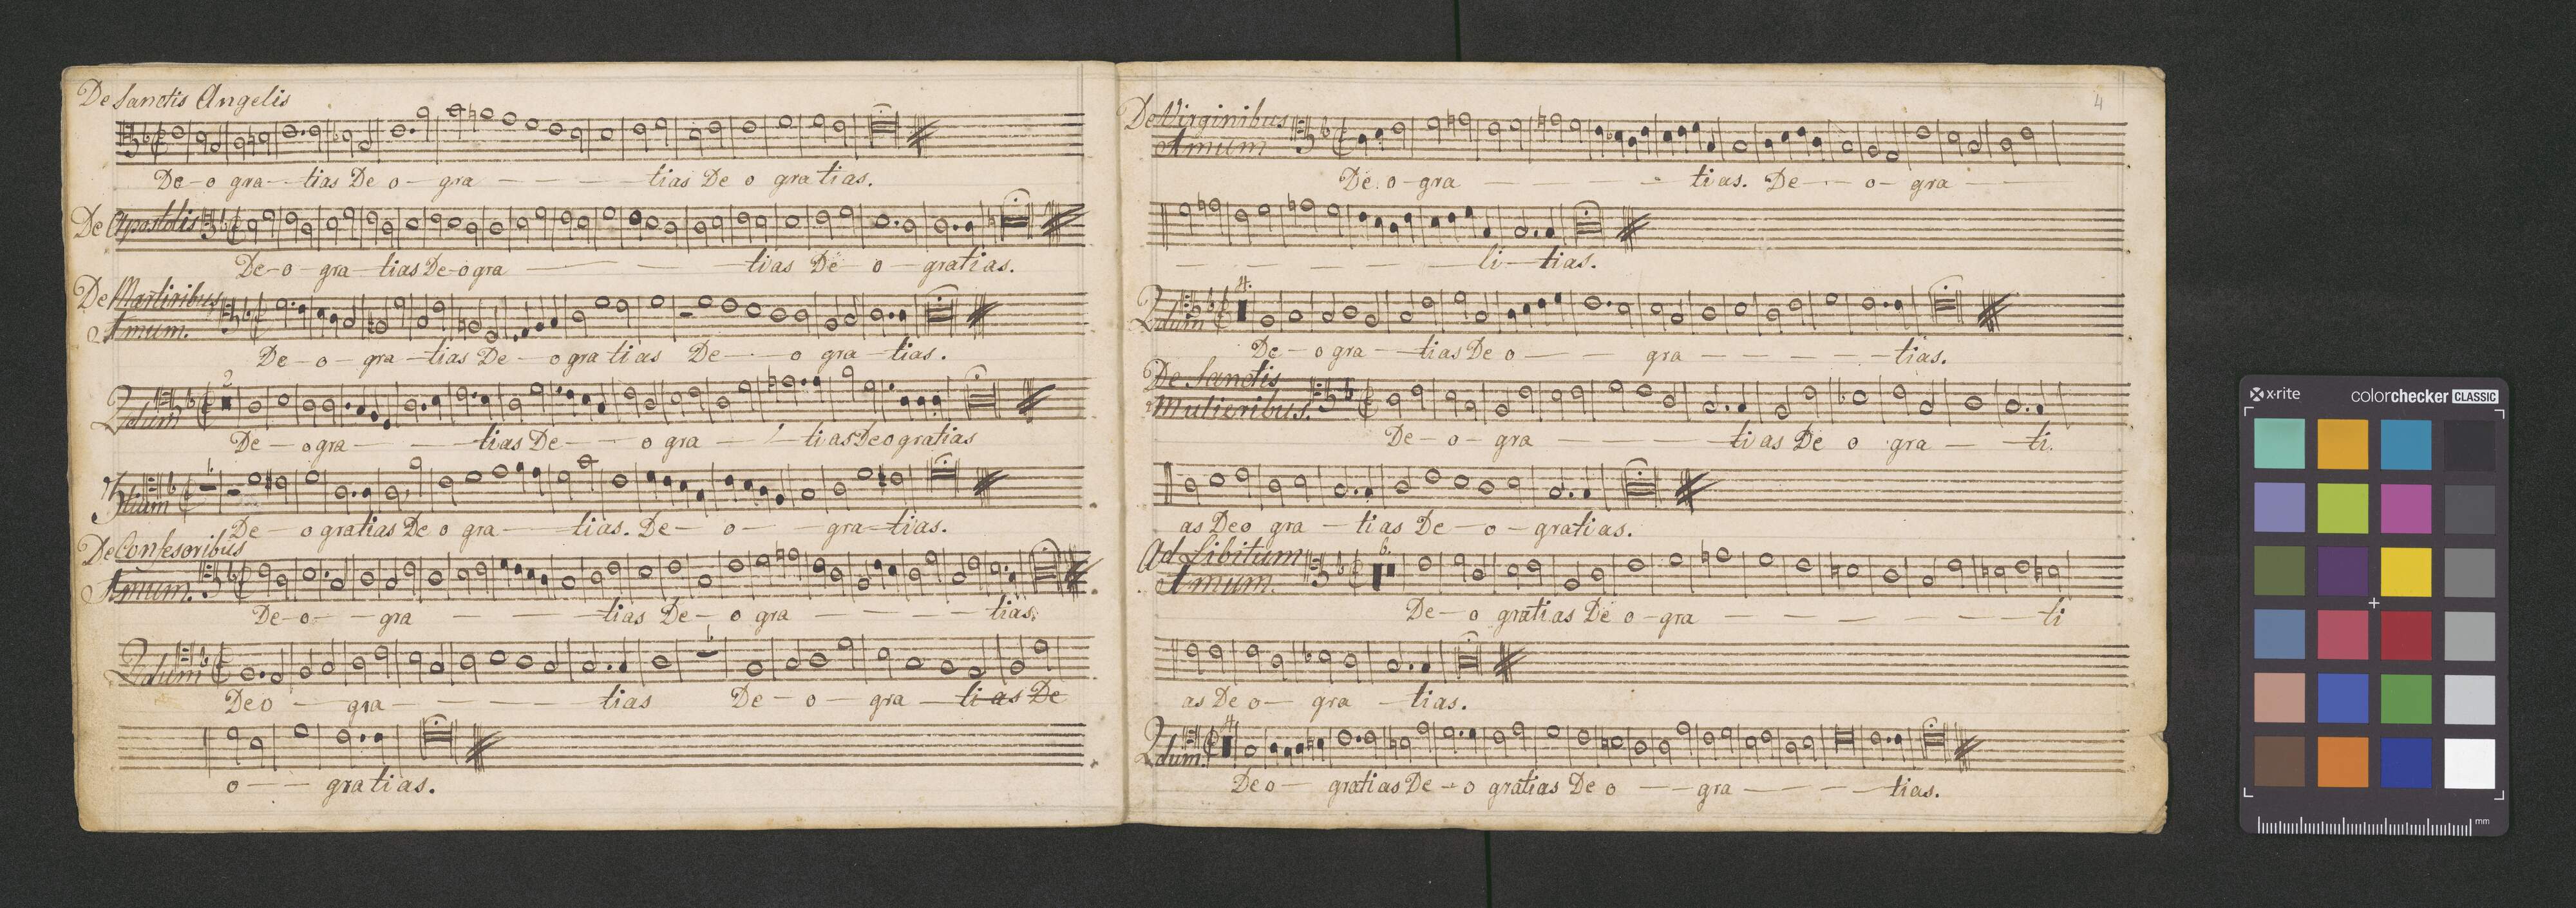 De Sanctis Angelis
De-o gra--tias De o-gra - - - - tias De o gratias.
De Apostolis
De-o-gra-tias De-o gra - - - - tias De o-gratias.
De Martiribus
1mum.
De-o-gra-tias De-o gratias De---o gra-tias.
2dum
De-o gra - - - tias De--o gra - - tias Deo gratias
3tium
De-o gratias De o gra - - tias. De-o- gra-tias.
De Confesoribus
1mum.
De-o--gra - - - tias De-o gra - - - - tias.
2dum
Deo - gra - - - - tias De-o-gra-ti as De
o-- gratias.
4
De Virginibus
1mum
De.o-gra - - - - tias. De---o-gra - -
- - - - li-tias.
4.
2dum
De-o gra--tias De o - - - gra - - - - - tias.
De Sanctis
Mulieribus.
De-o-gra - - - - tias De o gra - - ti.
as Deo gra-tias De-o-gratias.
Ad libitum
1mum.
6.
De-o gratias De o-gra - - - - - - ti
as De o- gra-tias.
2dum.
4
Deo- gratias De-o gratias De o --gra - - - - tias.
x·rite
colorchecker CLASSIC
mm